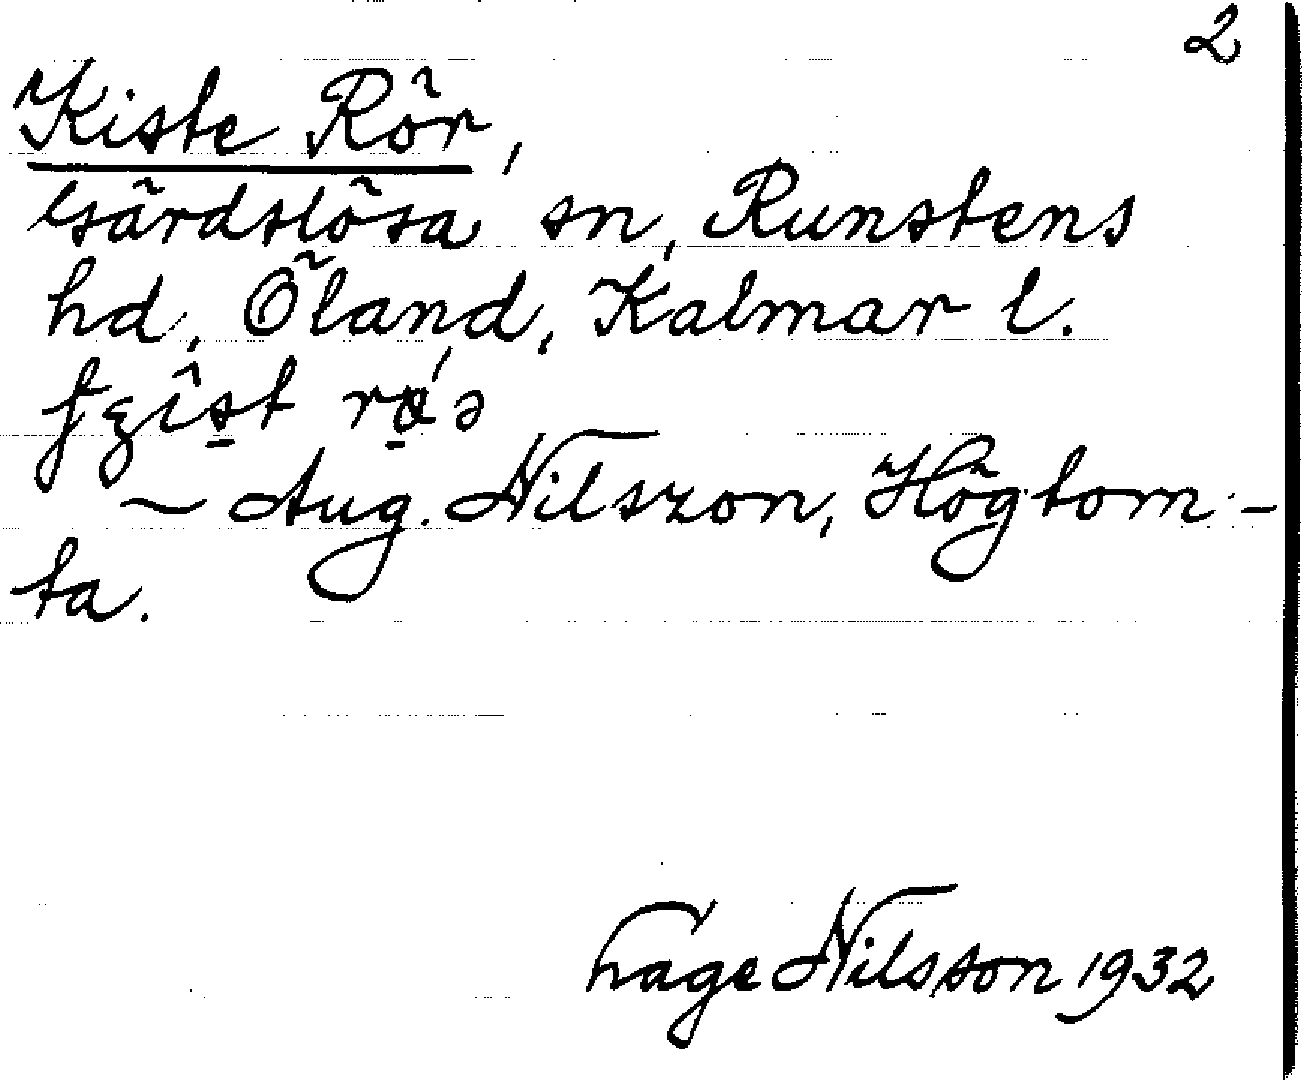 2
Kiste Rör,
Gärdslösa sn, Runstens
hd, Öland, Kalmar l.
~ Aug. Nilszon, Högtom-
ta.
Hage Nilsson 1932